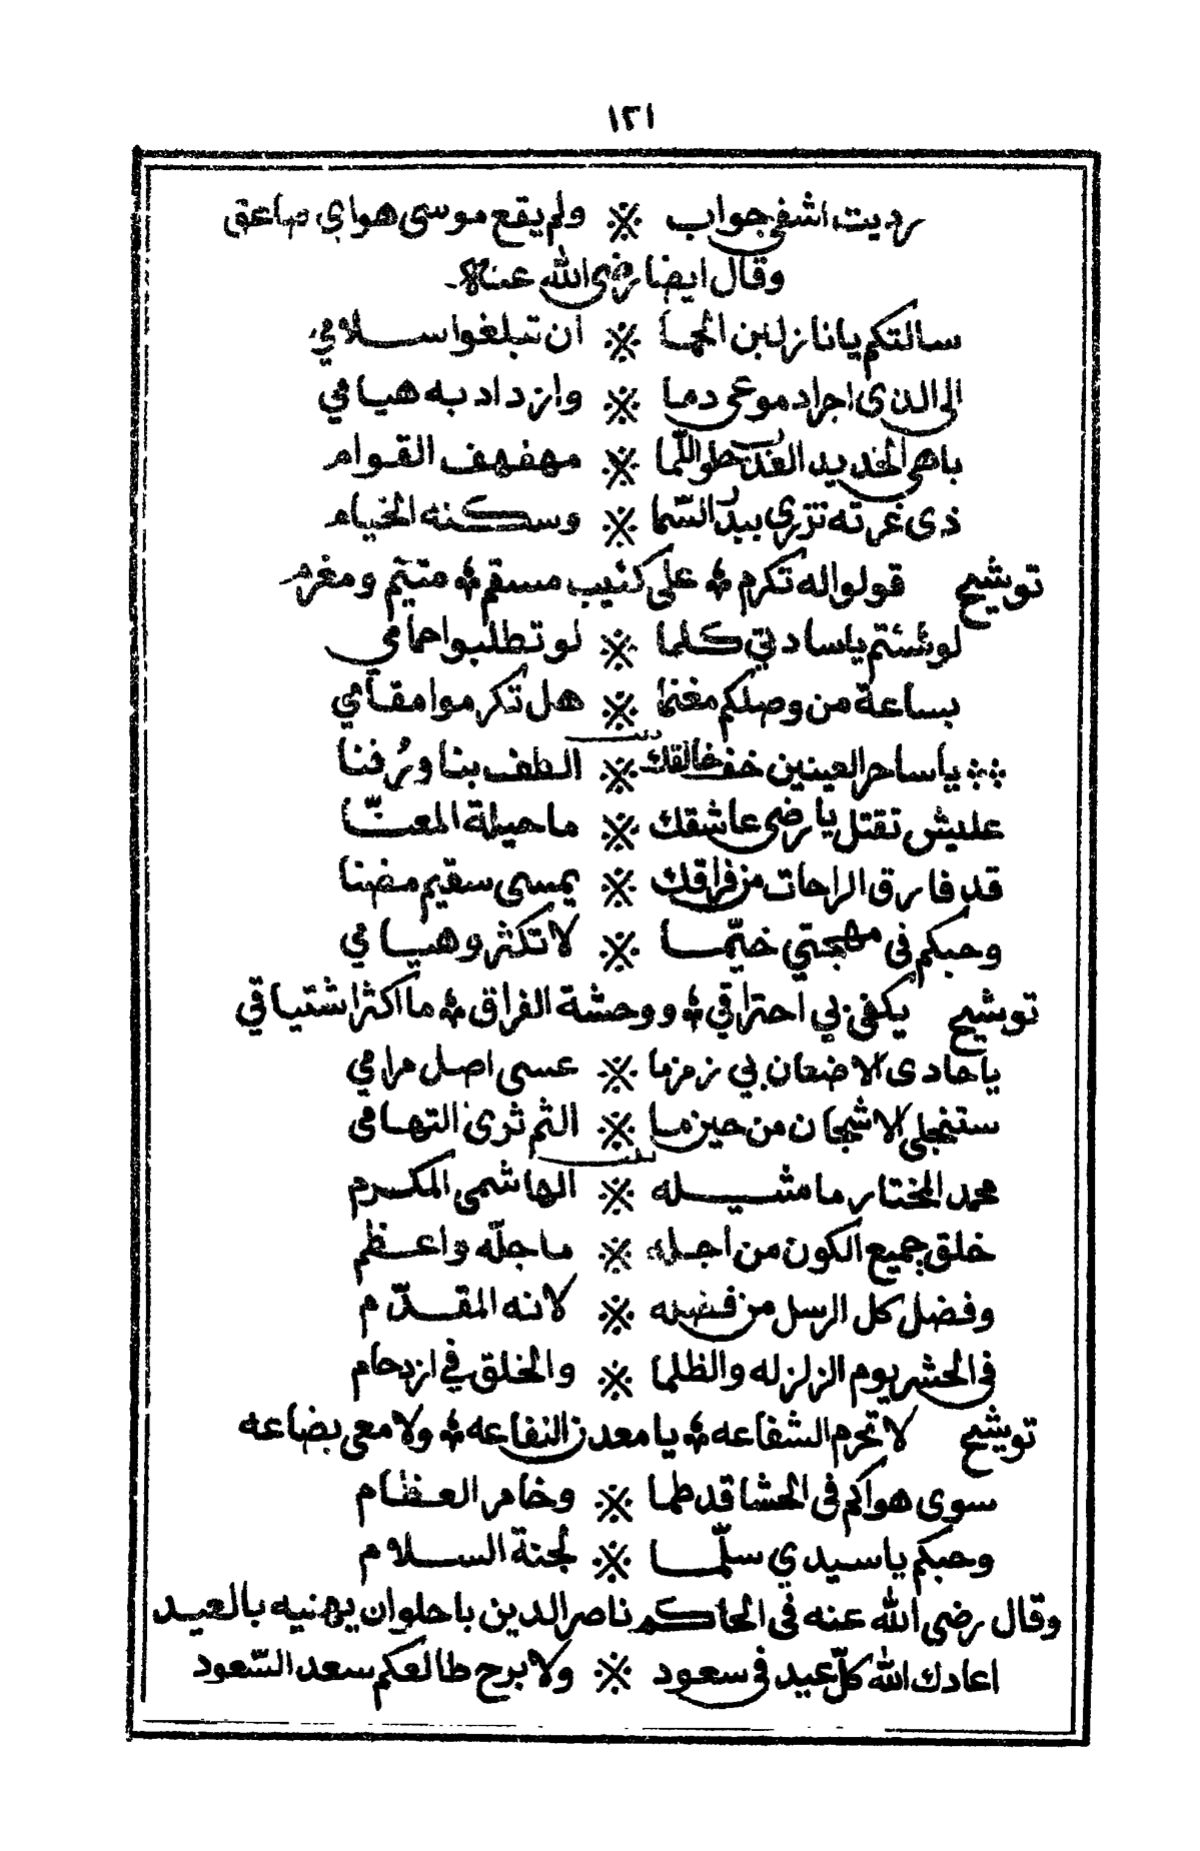 ١٢١
رديت اشفى جواب ※ ولم يقع موسى هواي صاعق
وقال ايضا رضى الله عنه
سالتكم يا نازلين الحما ※ ان تبلغوا سلامي
الى الذى اجراد موعى دما ※ وازداد به هيامي
باهى الخديد العذب حلو اللما ※ مهفهف القوام
ذى غرته تزري ببدر السّما ※ وسكنه الخيام
توشيح قولوا له تكرم ؞ على كئيب مسقم ؞ متيّم ومغرم
لو شئتم يا سادتي كلما ※ لو تطلبوا حمامي
بساعة من وصلكم مغنما ※ هل تكرموا مقامي
بيت
؞؞ يا ساحر العينين خف خالقك ※ الطف بنا ورُفنا
عليش تقتل يا رضى عاشقك ※ ما حيلة المعنّا
قد فارق الراحات من فراقك ※ يمسى سقيم مضنا
وحبكم فى مهجتي خيّما ※ لا تكثر وهيامي
توشيح يكفى بي احتراقي ؞ ووحشة الفراق ؞ ما اكثر اشتياقي
يا حادى الاضعان بي زمزما ※ عسى اصل مرامي
ستنجلى الاشجان من حين ما ※ الثم ثرى التهامى
بيت
محمد المختار ما مثيله ※ الهاشمى المكرم
خلق جميع الكون من اجله ※ ما جلّه واعظم
وفضل كل الرسل من فضله ※ لانه المقدّم
فى الحشر يوم الزلزله والظلما ※ والخلق في ازدحام
توشيح لا تحرم الشفاعه ؞ يا معدن النفاعه ؞ ولا معى بضاعه
سوى هواكم فى الحشا قد طما ※ وخامر العظام
وحبكم يا سيدي سلّما ※ لجنة السلام
وقال رضى الله عنه فى الحاكم ناصر الدين باحلوان يهنيه بالعيد
اعادك الله كلّ عيد فى سعود ※ ولا برح طالعكم سعد السّعود